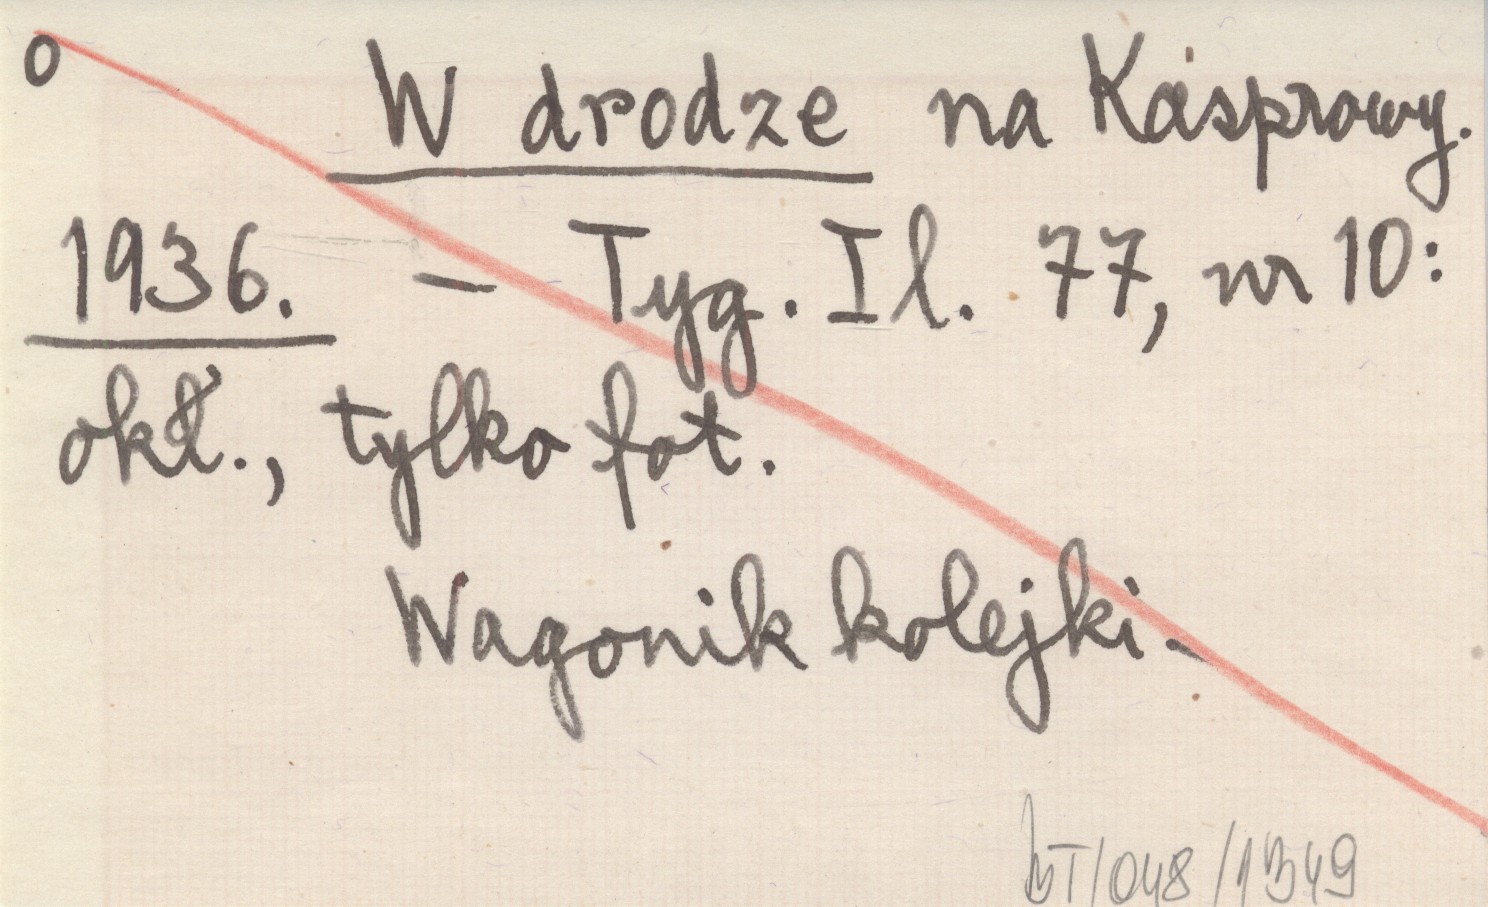 o
W drodze na Kasprowy.
1936. – Tyg. Il. 77, nr 10:
okł., tylko fot.
Wagonik kolejki.
BT/048/1349